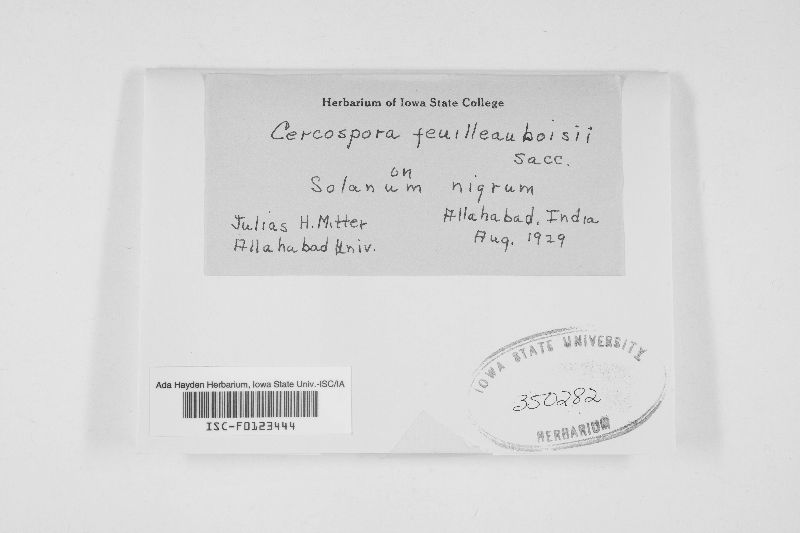 Herbarium of Iowa State College
Cercospora feuilleauboisii
Sacc.
on
Solanum nigrum
Julias H. Mitter
Allahabad Univ.
Allahabad, India
Aug. 1929
Ada Hayden Herbarium, Iowa State Univ.-ISC/IA
ISC-F0123444
IOWA STATE UNIVERSITY
350282
HERBARIUM